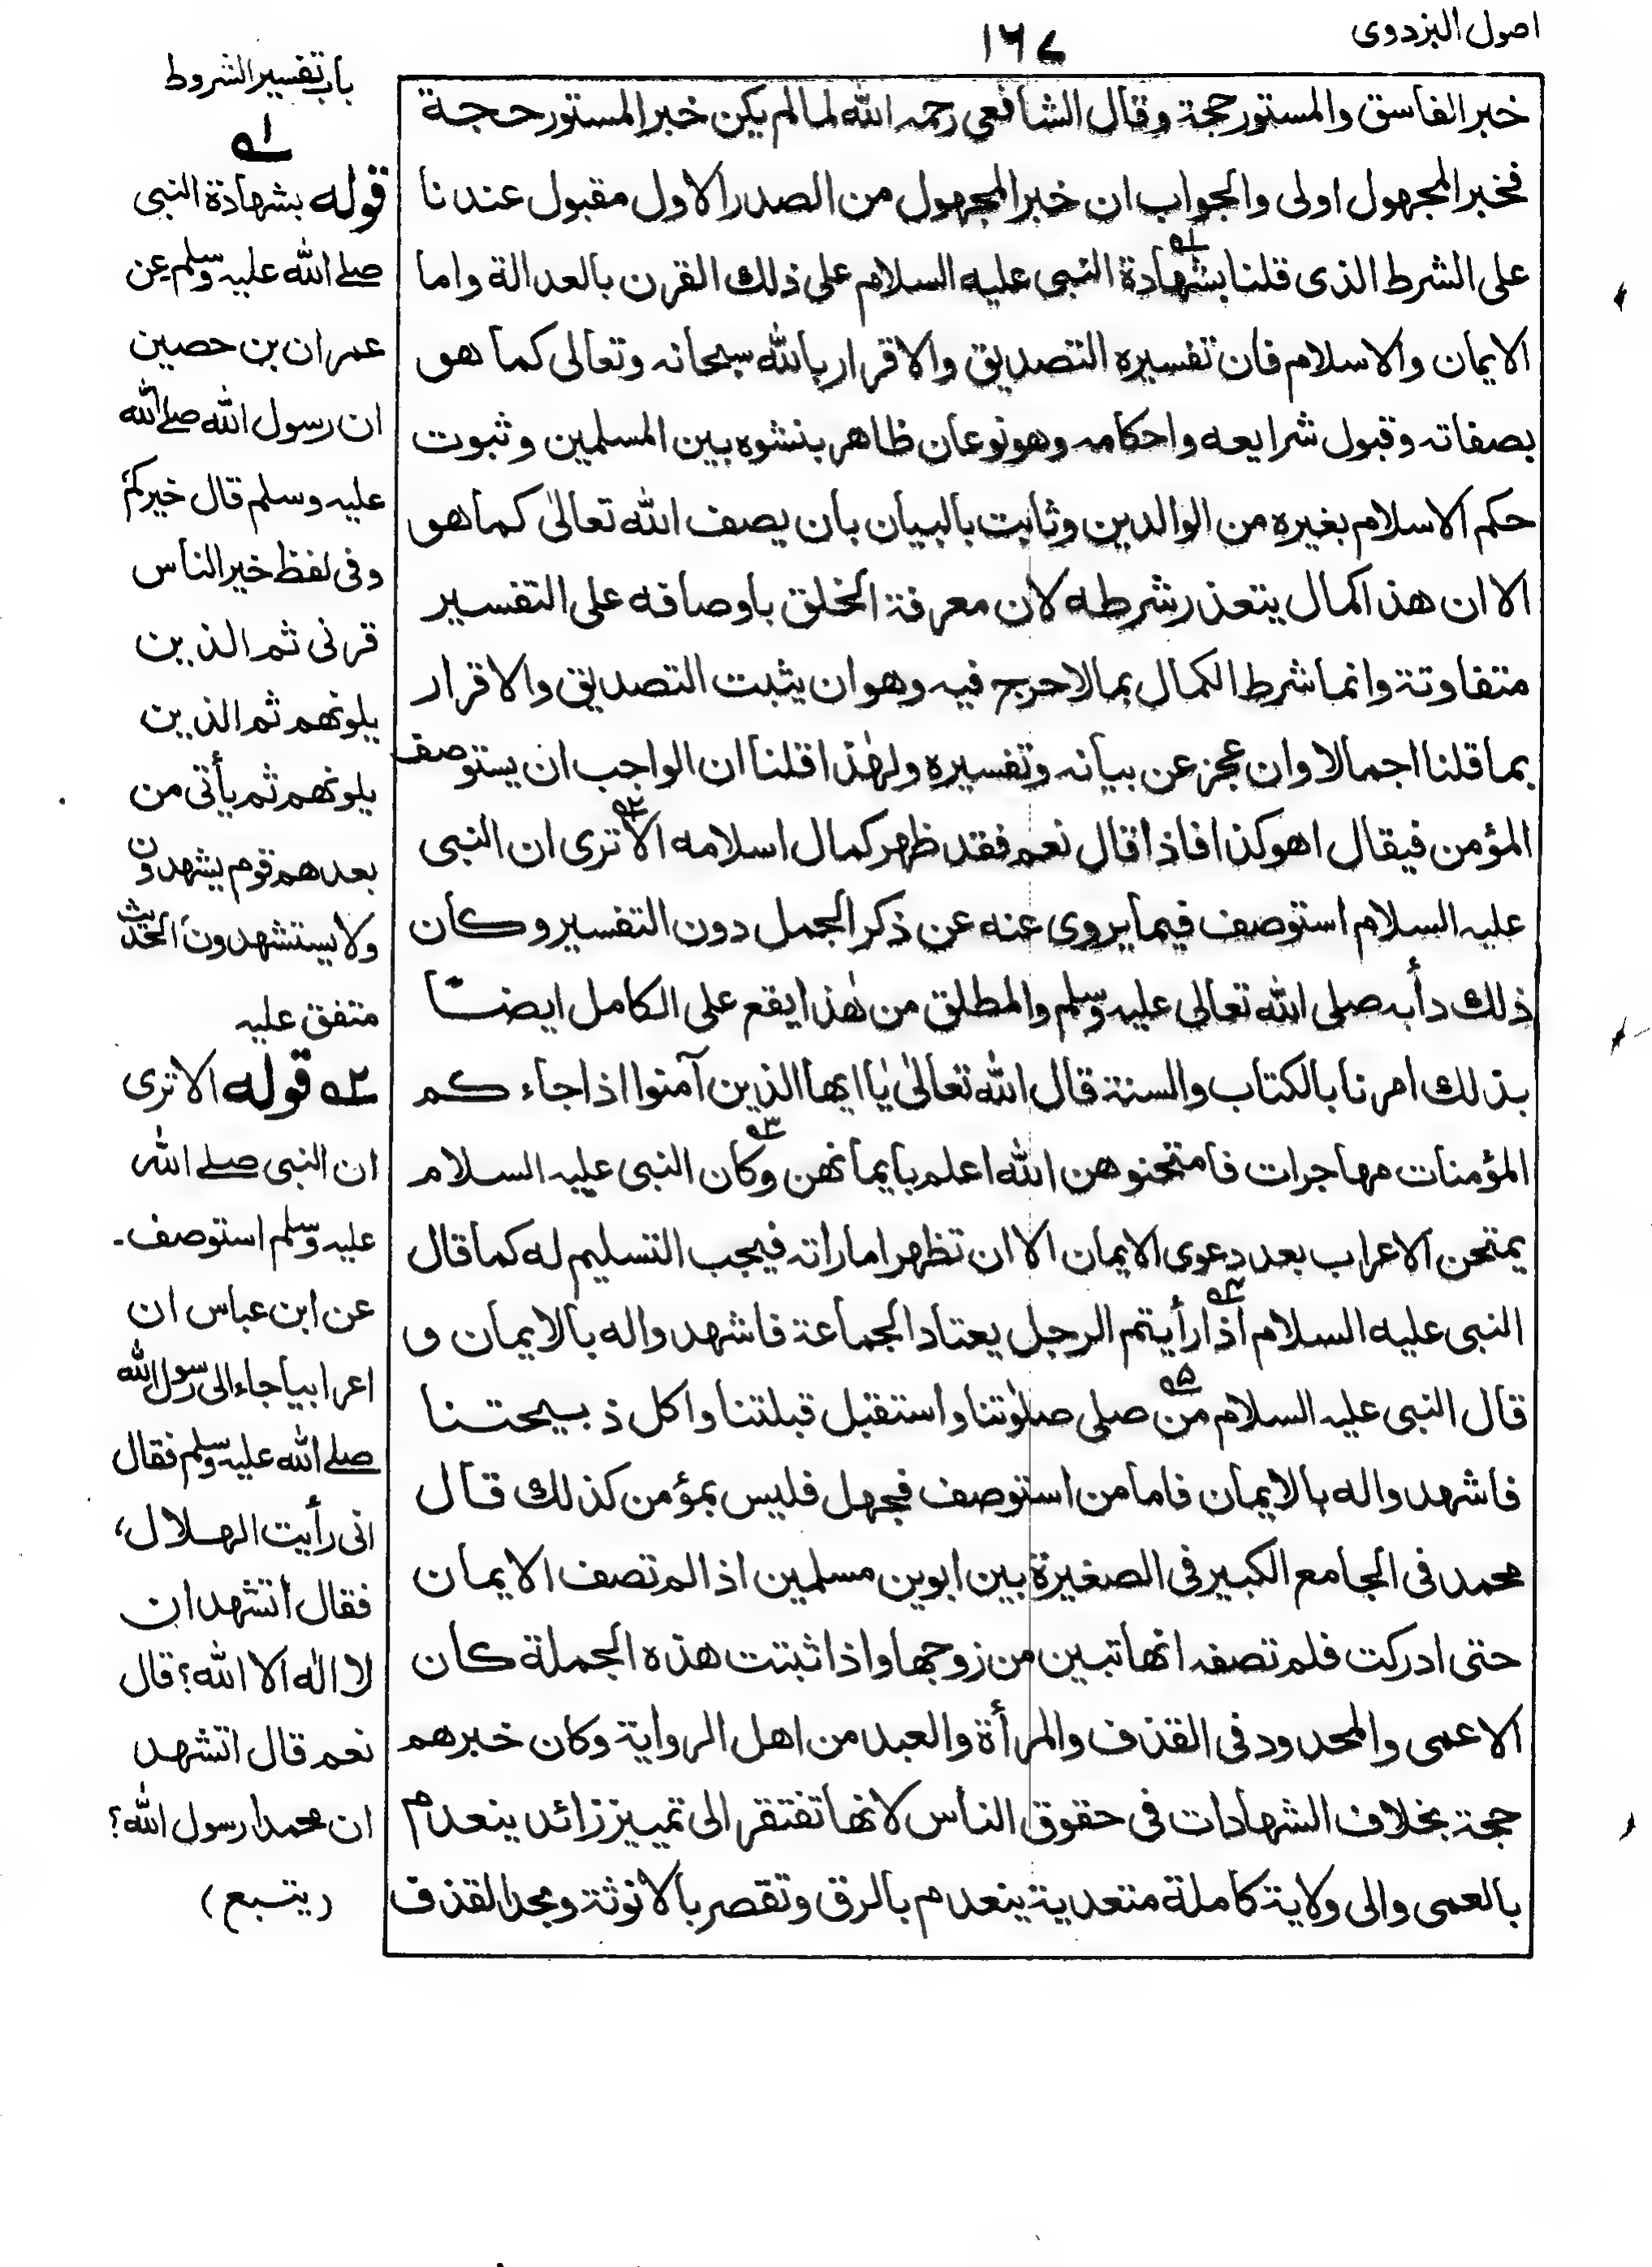 اصول البزدوی
١٦٧
باب تفسیر الشروط
خبر الفاسق والمستور حجة وقال الشافعی رحمہ اللہ لما لم یکن خبر المستور حجة
فخبر المجهول اولی والجواب ان خبر المجهول من الصدر الاول مقبول عندنا
علی الشرط الذی قلنا بشهادة النبی علیه السلام علی ذلك القرن بالعدالة واما
الایمان والاسلام فان تفسیره التصدیق والاقرار باللہ سبحانہ وتعالی کما هو
بصفاتہ وقبول شرایعه واحکامہ وهو نوعان ظاهر بنشوه بین المسلمین وثبوت
حکم الاسلام بغیره من الوالدین وثابت بالبیان بان یصف اللہ تعالیٰ کما هو
الا ان هذا کمال یتعذر شرطه لان معرفة الخلق باوصافه علی التفسیر
متفاوتة وانما شرط الکمال بما لا حرج فیہ وهو ان یثبت التصدیق والاقرار
بما قلنا اجمالا وان عجز عن بیانہ وتفسیره ولهٰذا قلنا ان الواجب ان یستوصف
المؤمن فیقال اهو کذا فاذا قال نعم فقد ظهر کمال اسلامه الا تری ان النبی ٢
علیہ السلام استوصف فیما یروی عنه عن ذکر الجمل دون التفسیر وکان
ذلك دأبہ صلی اللہ تعالی علیہ وسلم والمطلق من هٰذا یقع علی الکامل ایضا
بذلك امرنا بالکتاب والسنة قال اللہ تعالیٰ یٰا ایها الذین آمنوا اذا جاءکم
المؤمنات مهاجرات فامتحنوهن اللہ اعلم بایمانهن وکان النبی علیہ السلام ٣
یمتحن الاعراب بعد دعوی الایمان الا ان تظهر اماراتہ فیجب التسلیم له کما قال
النبی علیه السلام اذا رأیتم الرجل یعتاد الجماعة فاشهدوا له بالایمان و ٤
قال النبی علیہ السلام من صلی صلٰوتنا واستقبل قبلتنا واکل ذبیحتنا ٥
فاشهدوا له بالایمان فاما من استوصف فجهل فلیس بمؤمن کذلك قال
محمد فی الجامع الکبیر فی الصغیرة بین ابوین مسلمین اذا لم تصف الایمان
حتی ادرکت فلم تصفہ انها تبین من زوجها واذا ثبتت هذه الجملة کان
الاعمی والمحدود فی القذف والمرأة والعبد من اهل الروایة وکان خبرهم
حجة بخلاف الشهادات فی حقوق الناس لانها تفتقر الی تمییز زائد ینعدم
بالعمی والی ولایة کاملة متعدیة ینعدم بالرق وتقصر بالانوثة وبحد القذف
١
قوله بشهادة النبی
صلے اللہ علیہ وسلم عن
عمران بن حصین
ان رسول اللہ صلے اللہ
علیہ وسلم قال خیرکم
وفی لفظ خیر الناس
قرنی ثم الذین
یلونهم ثم الذین
یلونهم ثم یأتی من
بعدهم قوم یشهدون
ولا یستشهدون الحدیث
متفق علیہ
٢ قوله الا تری
ان النبی صلے اللہ
علیہ وسلم استوصف۔
عن ابن عباس ان
اعرابیا جاء الی رسول اللہ
صلے اللہ علیہ وسلم فقال
انی رأیت الهلال،
فقال أتشهد ان
لا الٰہ الا اللہ؟ قال
نعم قال اتشهد
ان محمدا رسول اللہ؟
(یتبع)